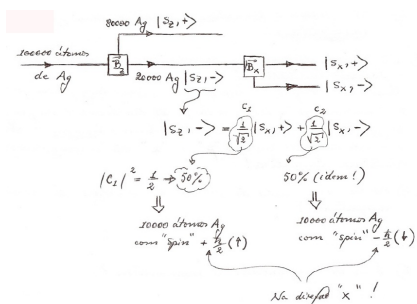 80000 Ag |S_z, +>
100000 átomos
de Ag
B_z
20000 Ag |S_z, ->
B_x
|S_x, +>
|S_x, ->
C_1 C_2
|S_z, -> = 1/√2 |S_x, +> + 1/√2 |S_x, ->
|C_1|² = 1/2 → 50% 50% (idem!)
⇓ ⇓
10000 átomos Ag
com "spin" + ℏ/2 (↑)
10000 átomos Ag
com "spin" - ℏ/2 (↓)
Na direção "x" !